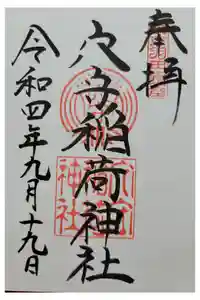 奉拝
穴守稲荷神社
令和四年九月十九日